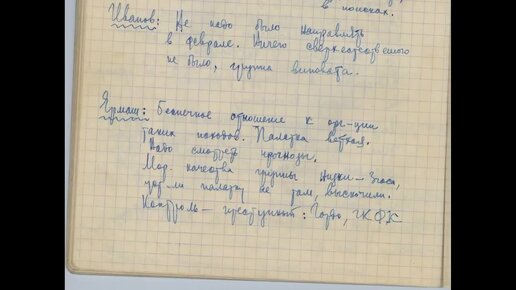 в поисках.
Иванов: Не надо было направлять
в феврале. Ничего сверхестественного
не было, группа виновата.
Ярмаш: Беспечное отношение к орг-ции
таких походов. Палатка ветхая.
Надо смотреть прогнозы.
Мор. качества группы низки –
ли палатку не там, выскочили.
Контроль – преступный: Гордо, ГКФК